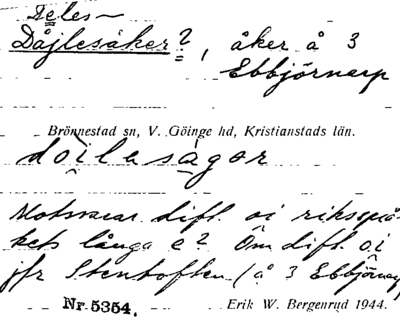 Deles~
Dåjlesåker?, åker å 3
Ebbjörnarp
Brönnestad sn, V. Göinge hd, Kristianstads län.
doilesågor
Motsvarar dift. oi rikssprå-
kets långa e? Om dift. oi
jfr Stentoften (å 3 Ebbjörnarp
Nr 5354. Erik W. Bergenrud 1944.